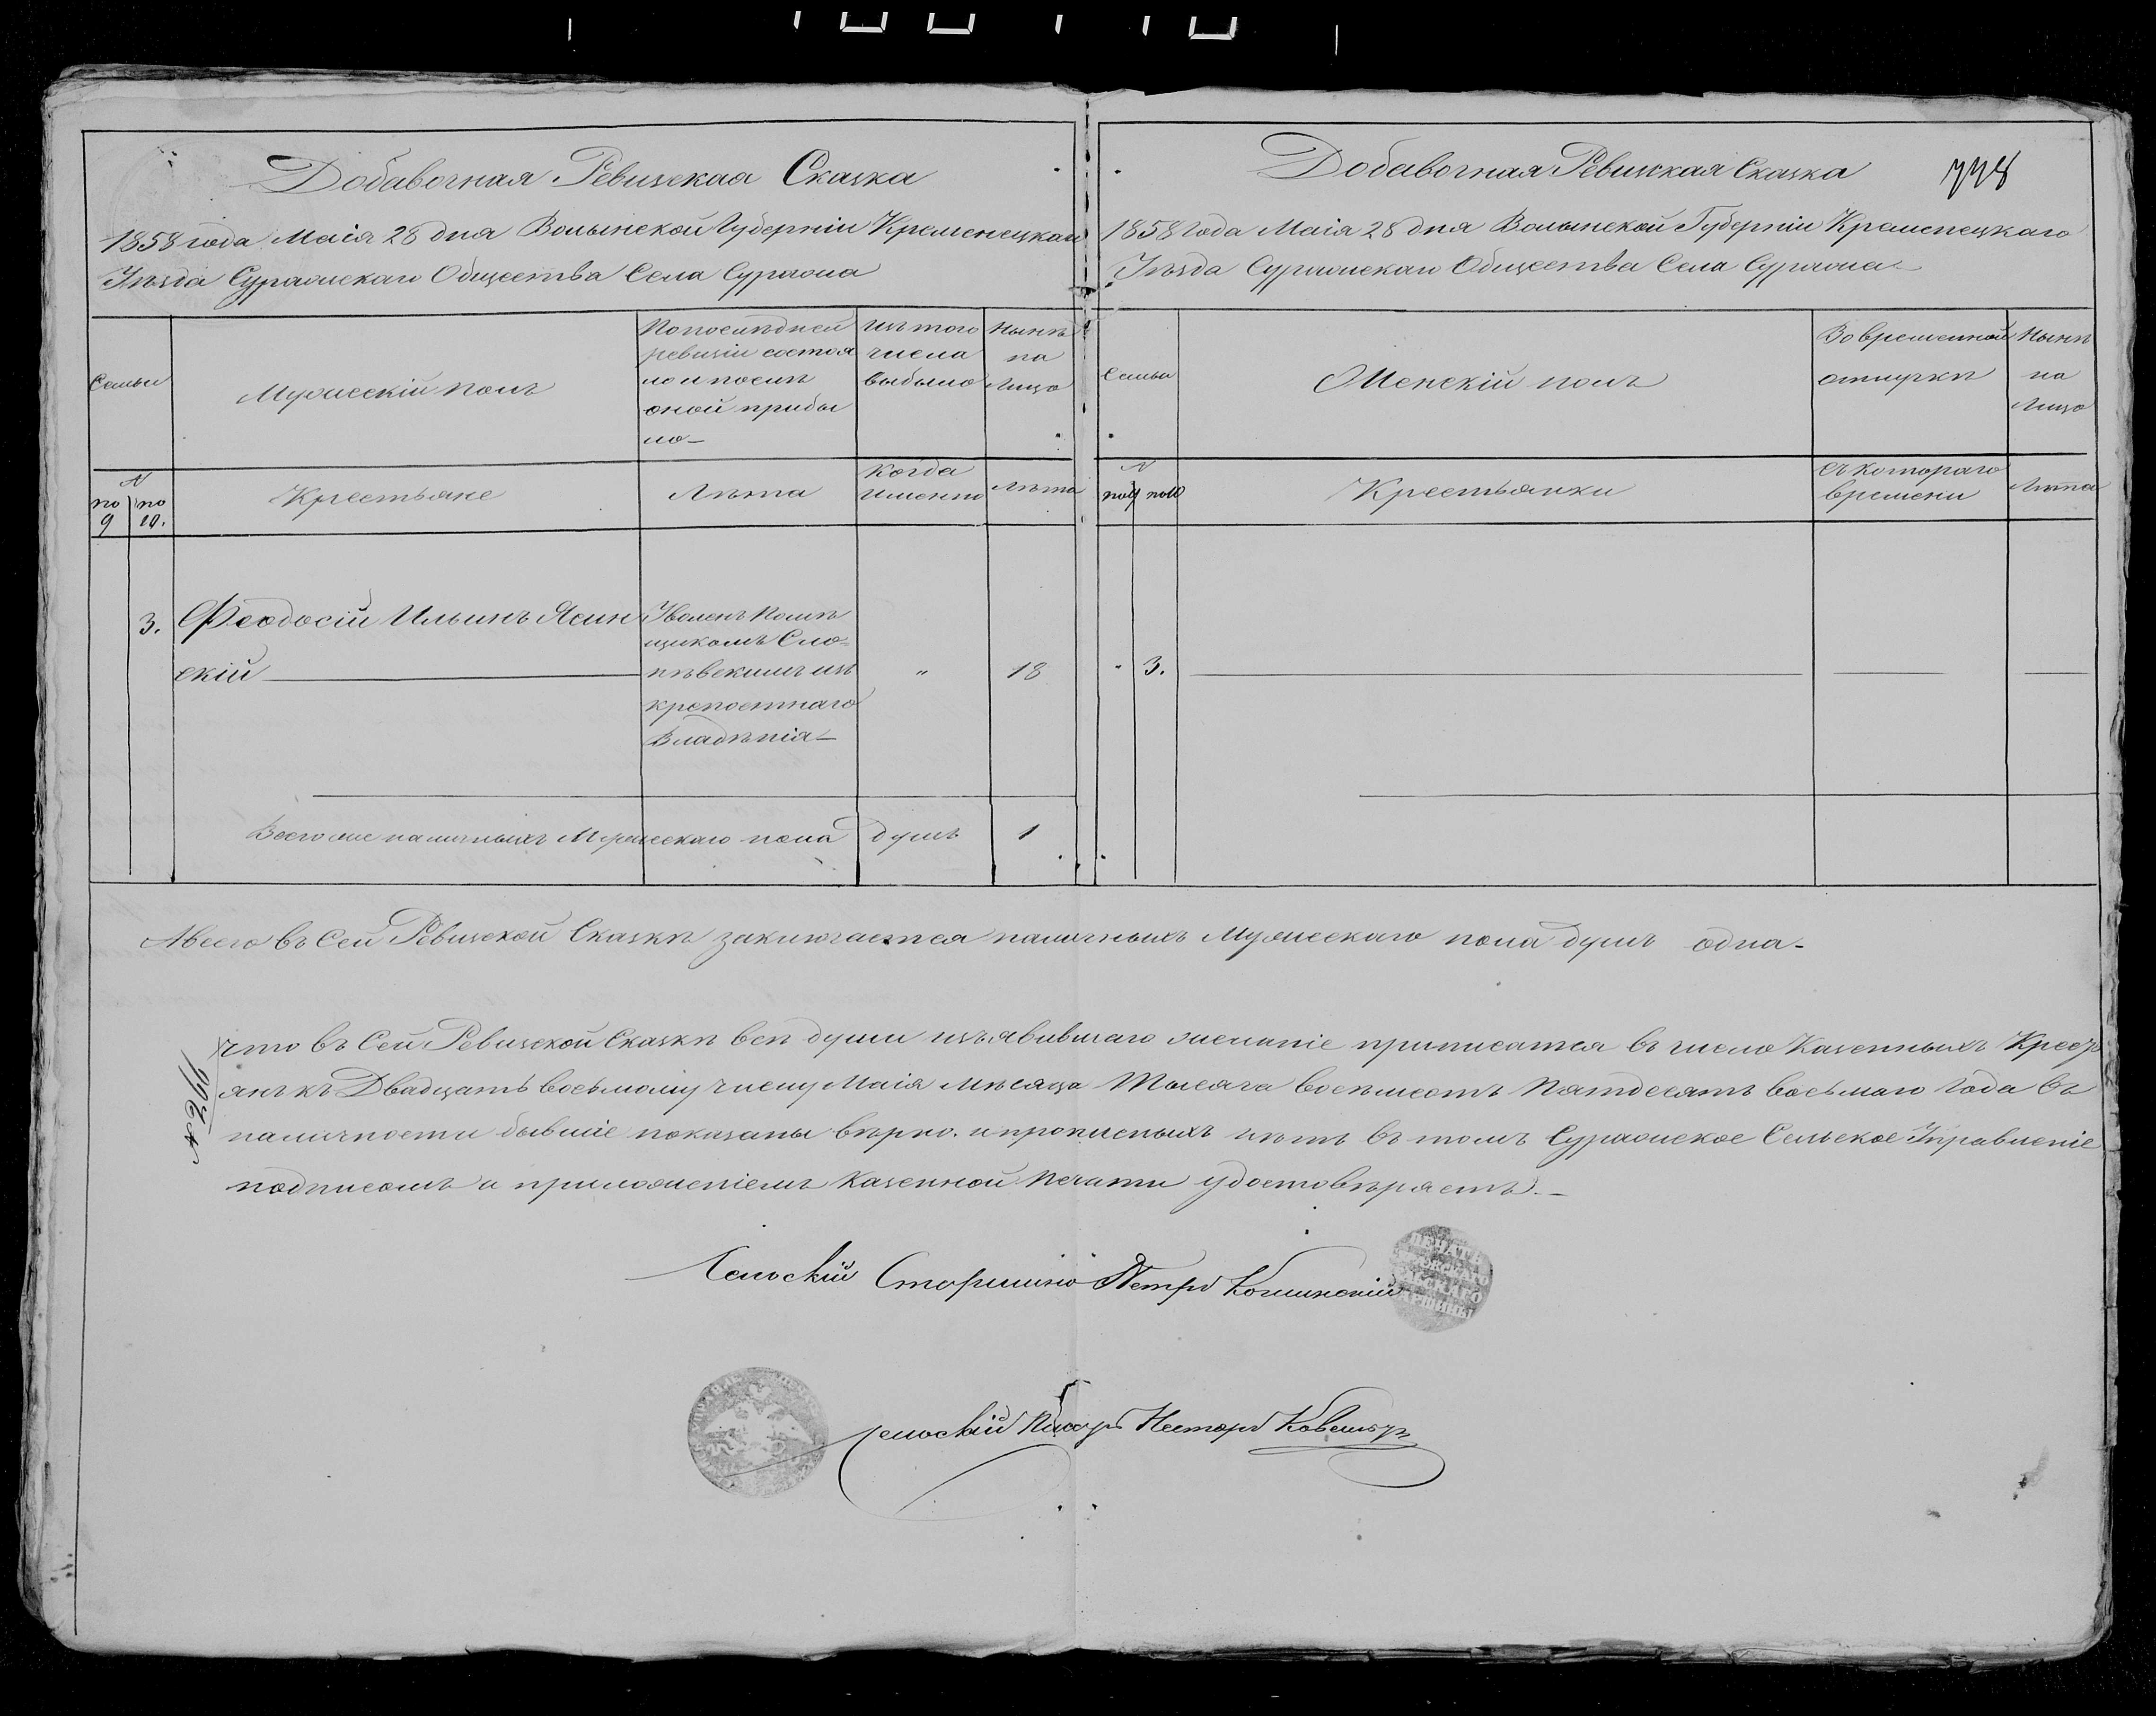 Добавочная Ревизская Сказка
1858 года Маія 28 дня Волынской Губерніи Кременецкаго
Уѣзда Суражскаго Общества Села Суража
Семьи
Мужескій полъ
По последней
ревизіи состоя
ло и послѣ
оной прибы
ло
Изъ того
числа
выбыло
Нынѣ
на
Лицо
№
по 9
по 10.
Крестьяне
Лѣта
Когда
Именно
Лѣта
3. Феодосій Ильинъ Ясин
скій
Уволенъ Помѣ
щикомъ Сло=
пѣвскимъ изъ
крепостнаго
Владѣнія
"
18
Всего же наличныхъ Мужескаго пола душъ 1
Добавочная Ревизская Сказка
778
1858 года Маія 28 дня Волынской Губерніи Кременецкаго
Уѣзда Суражскаго Общества Села Суража
Семьи
Женскій полъ
Во временной
отлучкѣ
Нынѣ
на
Лицо
№
по 9 по 10
Крестьянки
Съ котораго
времени
Лѣта
" 3.
А всего въ Сей Ревизской Сказкѣ заключается наличныхъ Мужескаго пола душъ одна
Что въ Сей Ревизской Сказкѣ всѣ души изъявившаго желаніе приписатся въ число Казенныхъ Крест
янъ къ Двадцать восьмому числу Маія Мѣсяца Тысяча восемьсотъ Пятдесятъ восьмаго Года въ
наличности бывшіе показаны вѣрно. и прописныхъ нѣтъ въ томъ Суражское Сельское Управленіе
подписомъ и приложеніемъ Казенной Печати удостовѣряетъ.
Сельскій Старшина Петръ
Сельскій Писарь Несторъ
ПЕЧАТЬ